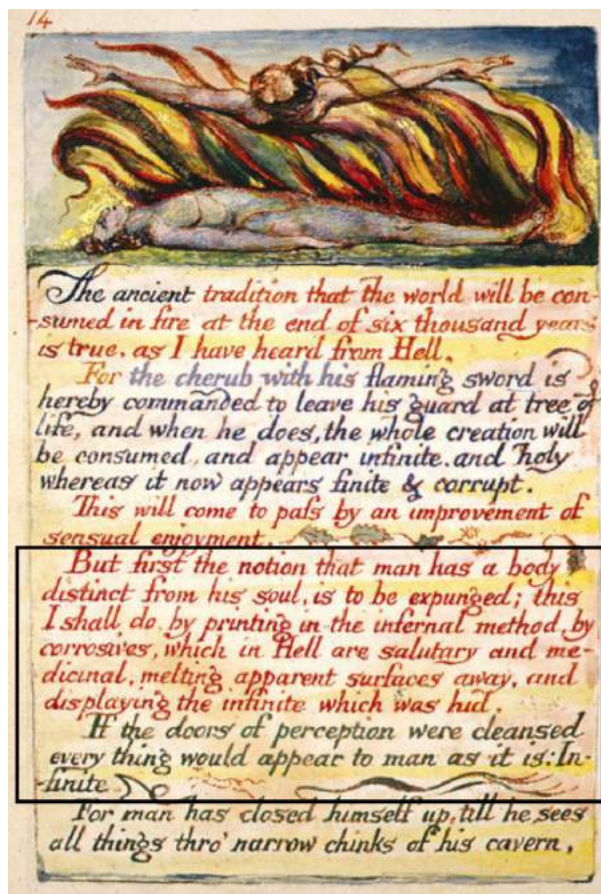 14
The ancient tradition that the world will be con-
-sumed in fire at the end of six thousand years
is true. as I have heard from Hell.
For the cherub with his flaming sword is
hereby commanded to leave his guard at tree of
life, and when he does, the whole creation will
be consumed, and appear infinite. and holy
whereas it now appears finite & corrupt.
This will come to paſs by an improvement of
sensual enjoyment.
But first the notion that man has a body
distinct from his soul, is to be expunged; this
I shall do, by printing in the infernal method, by
corrosives, which in Hell are salutary and me-
dicinal, melting apparent surfaces away, and
displaying the infinite which was hid.
If the doors of perception were cleansed
every thing would appear to man as it is: In-
-finite.
For man has closed himself up, till he sees
all things thro' narrow chinks of his cavern.